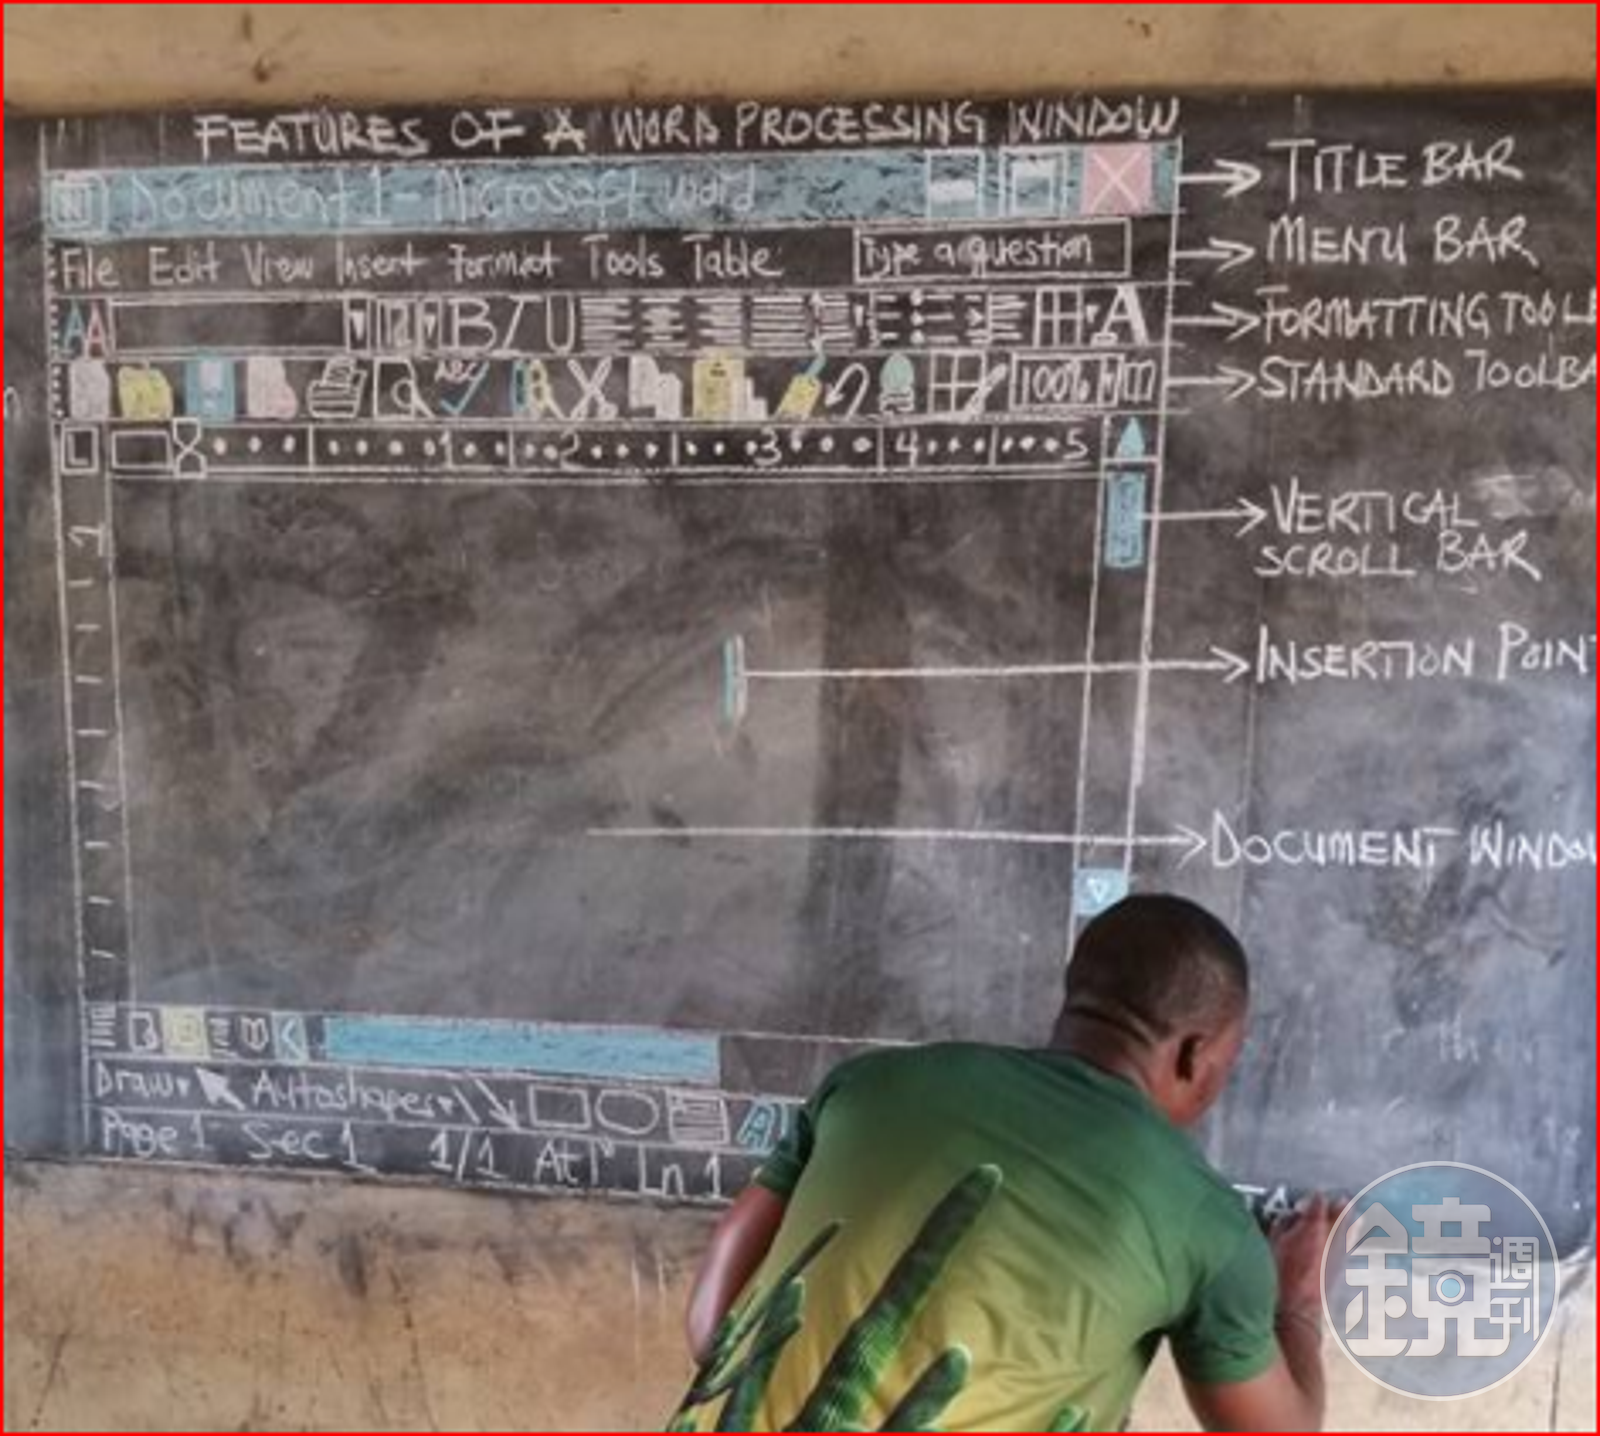 FEATURES OF A WORD PROCESSING WINDOW
Document 1 - Microsoft word
TITLE BAR
File Edit View Insert Format Tools Table
Type a question
MENU BAR
AA
B I U
A
FORMATTING TOOLB
ABC
100%
STANDARD TOOLBA
L
1 2 3 4 5
1
VERTICAL
SCROLL BAR
INSERTION POINT
DOCUMENT WINDOW
Draw Autoshapes
A
Page 1 Sec 1 1/1 At 1" Ln 1
TA
鏡週刊